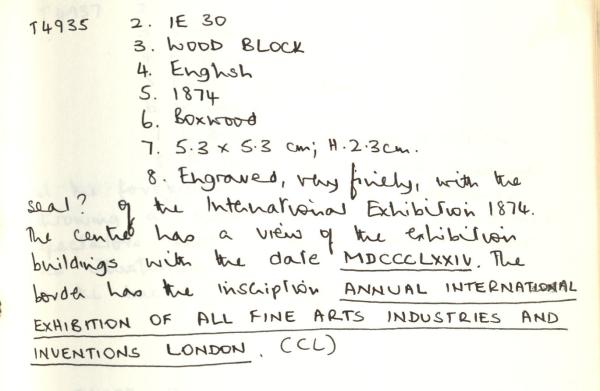 T4935 2. IE 30
3. WOOD BLOCK
4. English
5. 1874
6. Boxwood
7. 5.3 x 5.3 cm; H. 2.3cm.
8. Engraved, very finely, with the
seal? of the International Exhibition 1874.
The centre has a view of the exhibition
buildings with the date MDCCCLXXIV. The
border has the inscription ANNUAL INTERNATIONAL
EXHIBITION OF ALL FINE ARTS INDUSTRIES AND
INVENTIONS LONDON. (CCL)